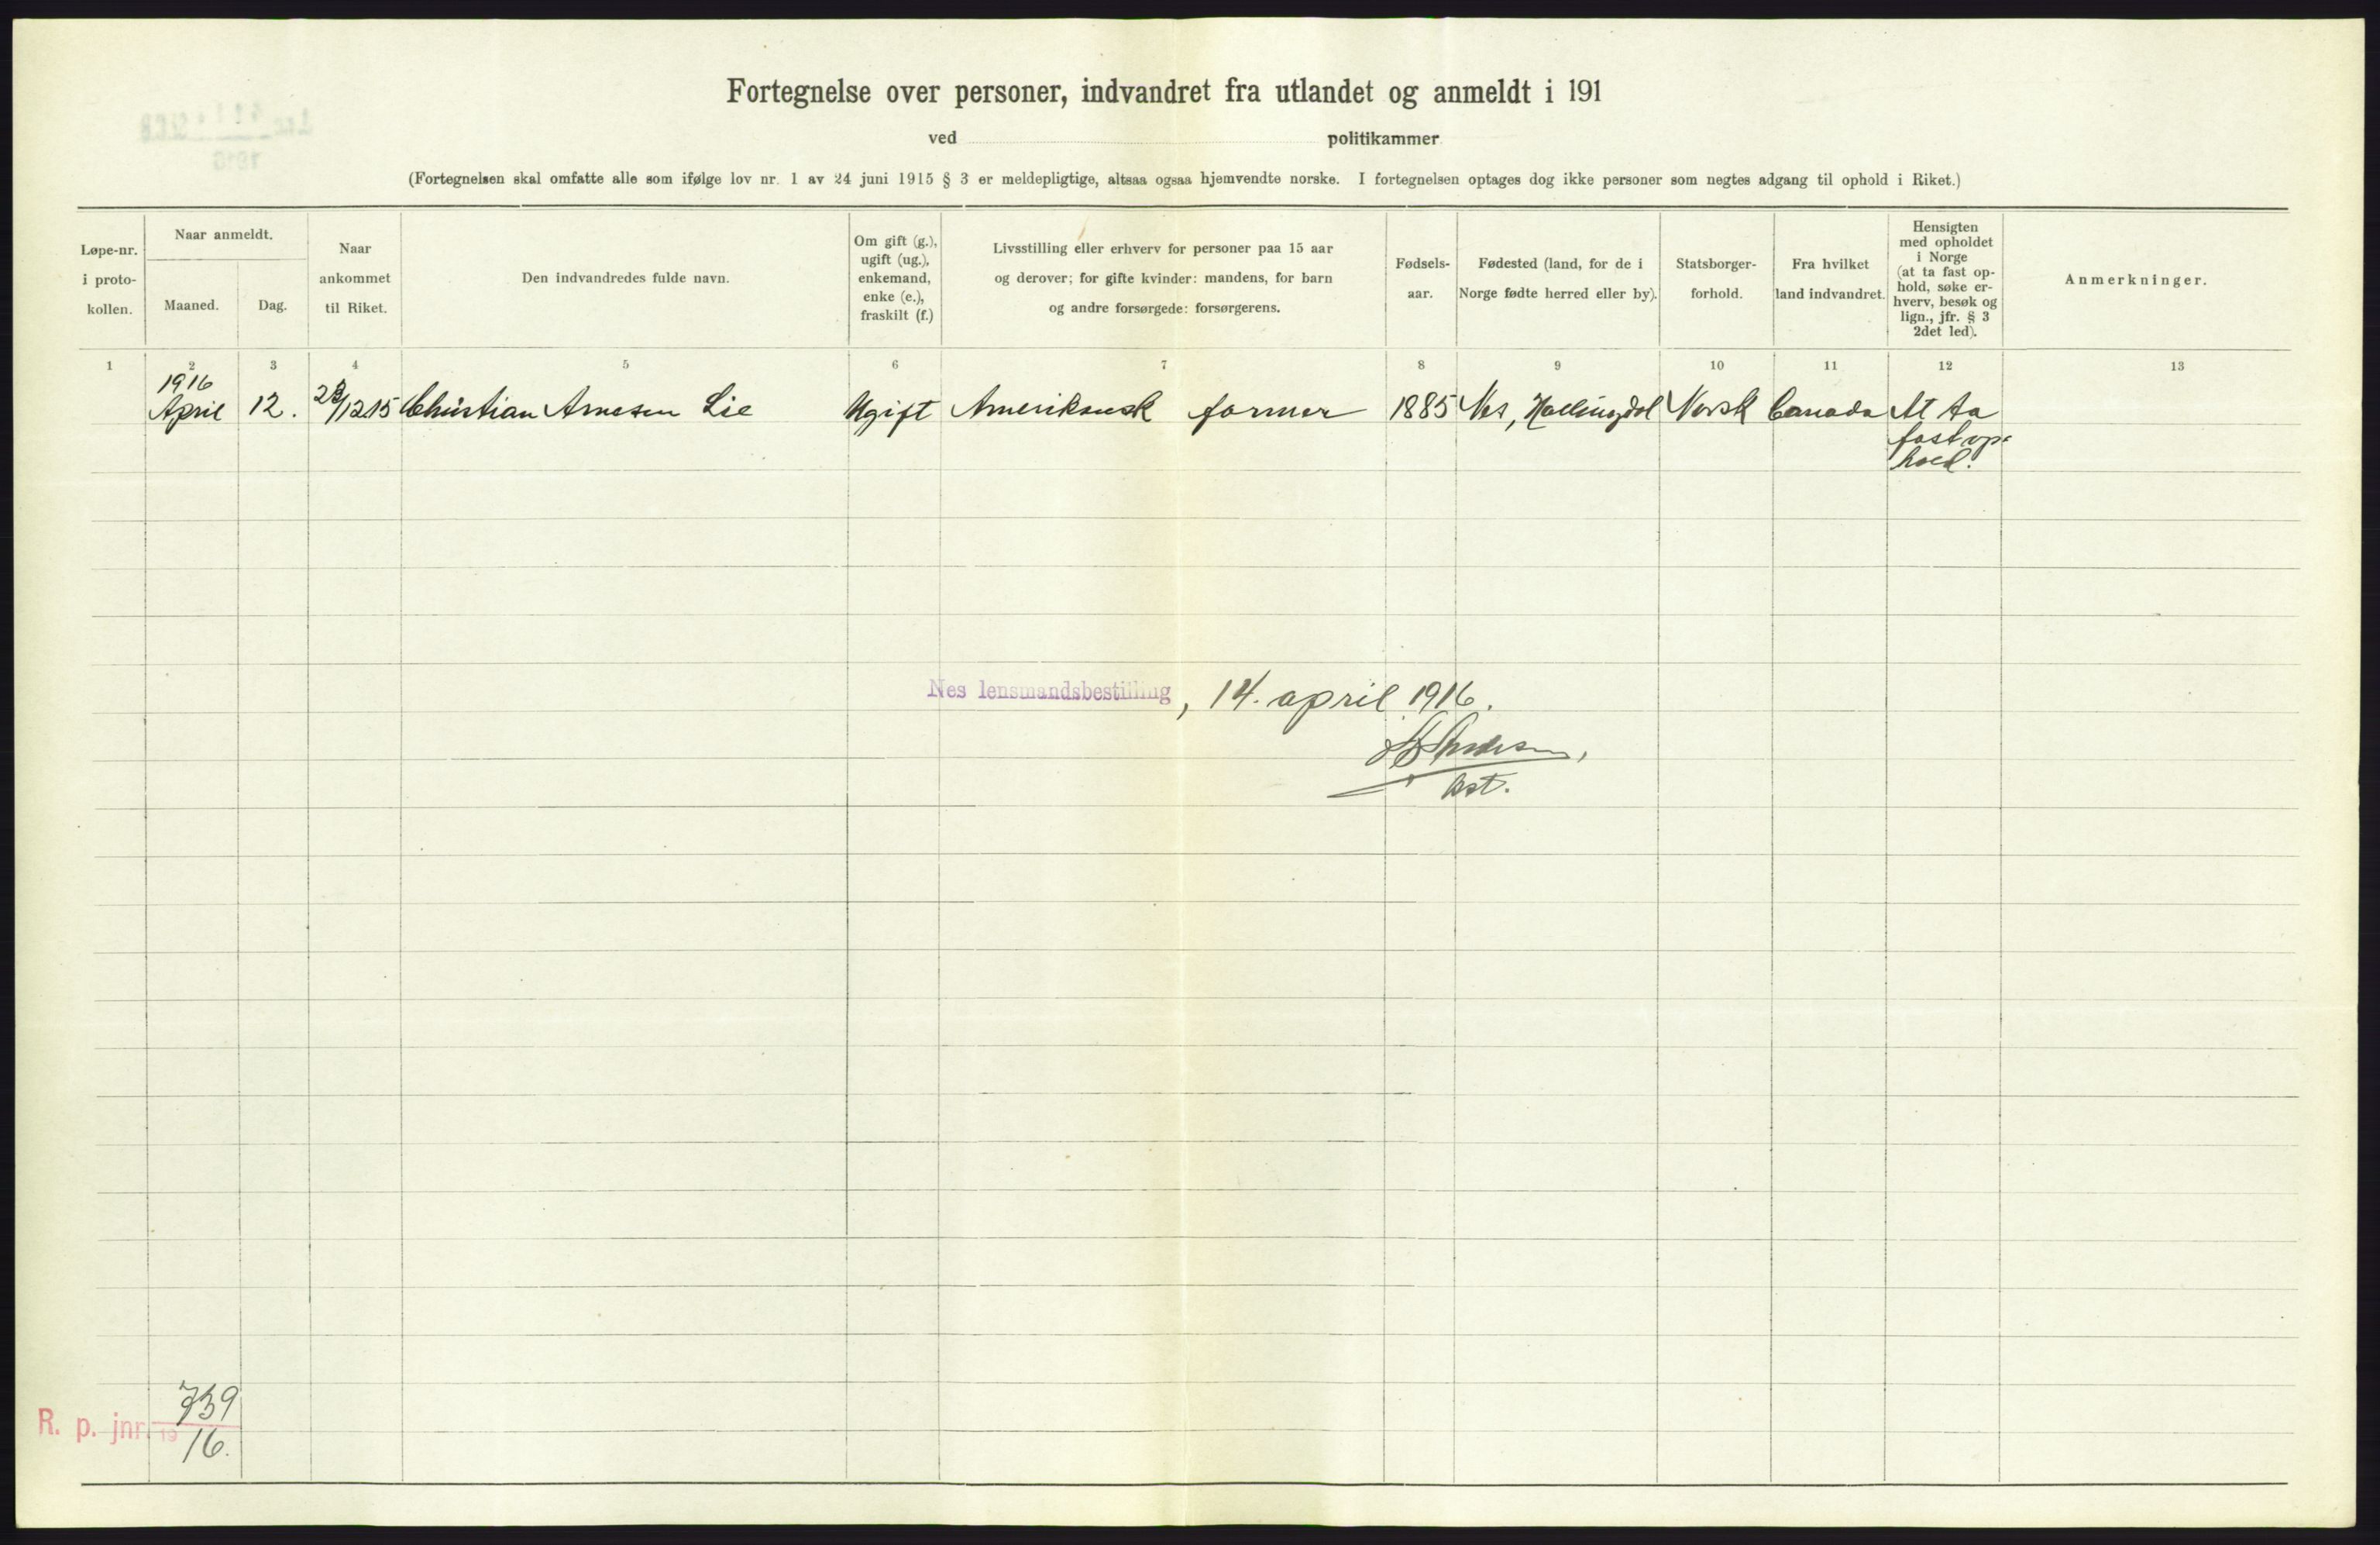 Fortegnelse over personer, indvandret fra utlandet og anmeldt i 191
ved politikammer
(Fortegnelsen skal omfatte alle som ifølge lov nr. 1 av 24 juni 1915 § 3 er meldepligtige, altsaa ogsaa hjemvendte norske. I fortegnelsen optages dog ikke personer som negtes adgang til ophold i Riket.)
Løpe-nr.
i proto-
kollen.
Naar anmeldt.
Maaned.
Dag.
Naar
ankommet
til Riket.
Den indvandredes fulde navn.
Om gift (g.),
ugift (ug.),
enkemand,
enke (e.),
fraskilt (f.)
Livsstilling eller erhverv for personer paa 15 aar
og derover; for gifte kvinder: mandens, for barn
og andre forsørgede: forsørgerens.
Fødsels-
aar.
Fødested (land, for de i
Norge fødte herred eller by).
Statsborger-
forhold.
Fra hvilket
land indvandret.
Hensigten
med opholdet
i Norge
(at ta fast op-
hold, søke er-
hverv, besøk og
lign., jfr. § 3
2det led).
Anmerkninger.
1 2 3 4 5 6 7 8 9 10 11 12 13
1916
April 12. /12 15 Christian Arnesen Lie Ugift Amerikansk farmer 1885 Nes, Hallingdal Norsk Canada At ta
fast op-
hold.
Nes lensmandsbestilling, 14. april 1916.
Ast.
R. p. jnr. 739
19 16.